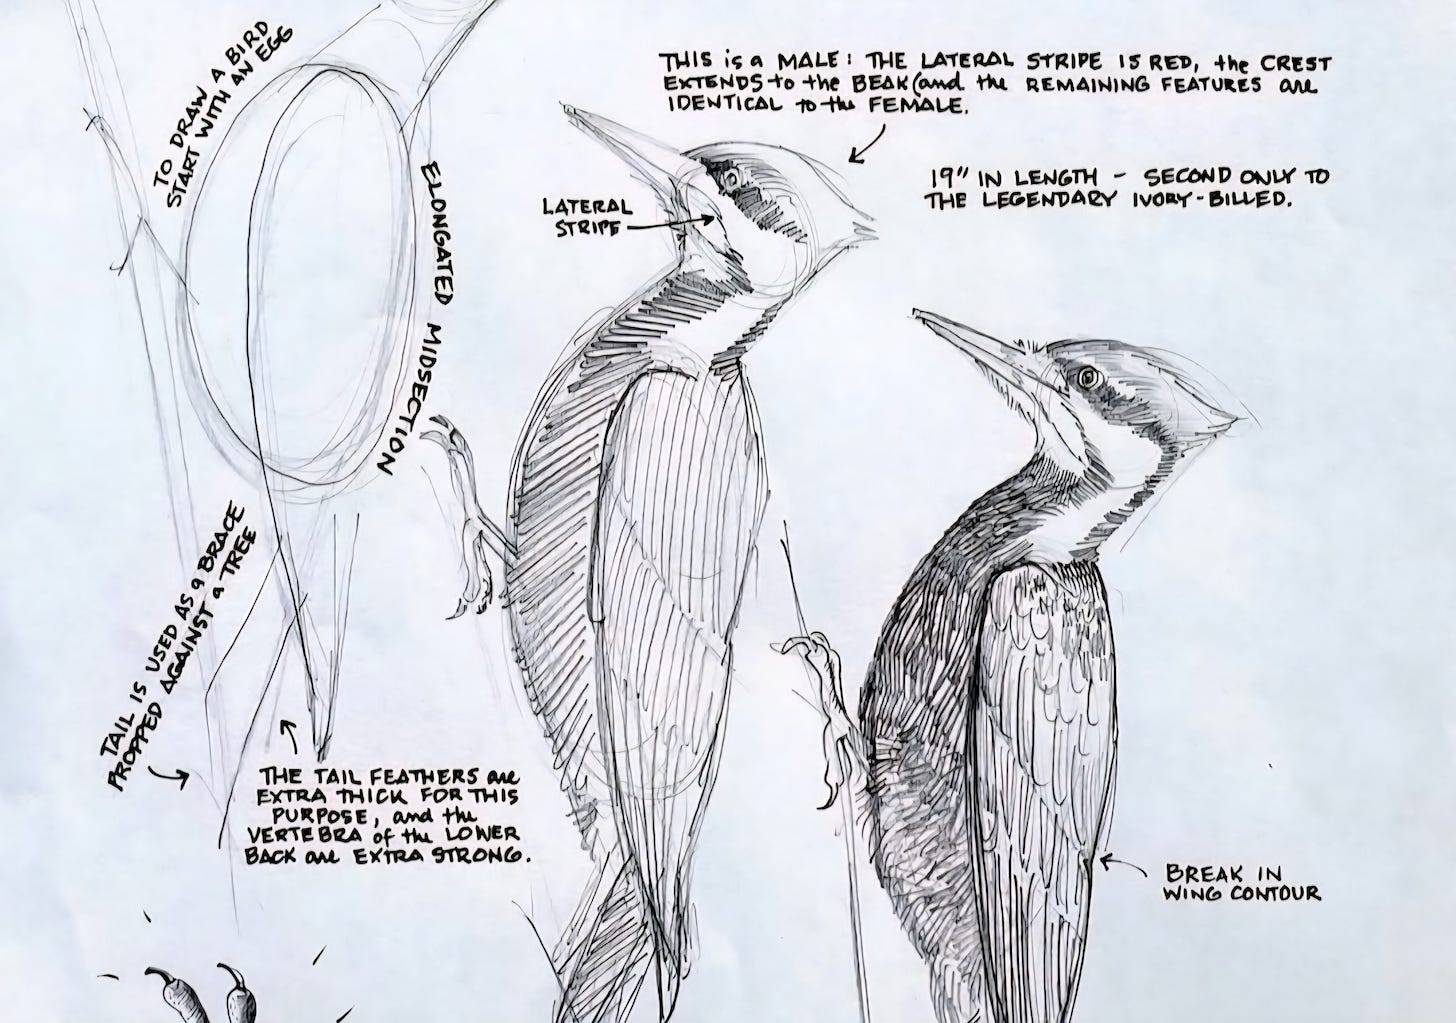 TO DRAW A BIRD
START WITH AN EGG
ELONGATED MIDSECTION
THIS is a MALE: THE LATERAL STRIPE IS RED, the CREST
EXTENDS to the BEAK (and the REMAINING FEATURES are
IDENTICAL to the FEMALE.
19" IN LENGTH - SECOND ONLY TO
THE LEGENDARY IVORY-BILLED.
LATERAL
STRIPE
TAIL IS USED AS a BRACE
PROPPED AGAINST a TREE
THE TAIL FEATHERS are
EXTRA THICK FOR THIS
PURPOSE, and the
VERTEBRA of the LOWER
BACK are EXTRA STRONG.
BREAK IN
WING CONTOUR